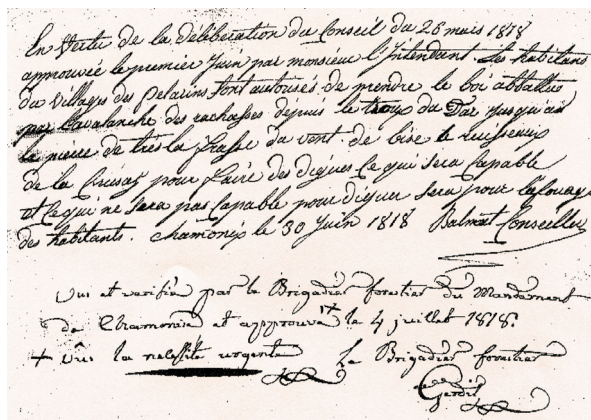 En Vertu de la délibération du Conseil du 26 mais 1818
approuvée le premier Juin par monsieur l'Intendant. Les habitans
du Villages des Pelarins sont autorisés de prendre le boi abbattus
par L'avalanche des dépuis le du jusqu'au
la pierre de tres la du vent de bise le ruisseaux
de la pour faire des digues Ce qui sera Capable
et Ce qui ne sera pas Capable pour diguer sera pour
des habitants. Chamonix le 30 Juin 1818 Balmat Conseiller
Vui et verifié par le Brigadier forestier du Mandement
de Chamonix et approuvé + le 4 juillet 1818.
+ vûe la nécéssité urgente Le Brigadier forestier